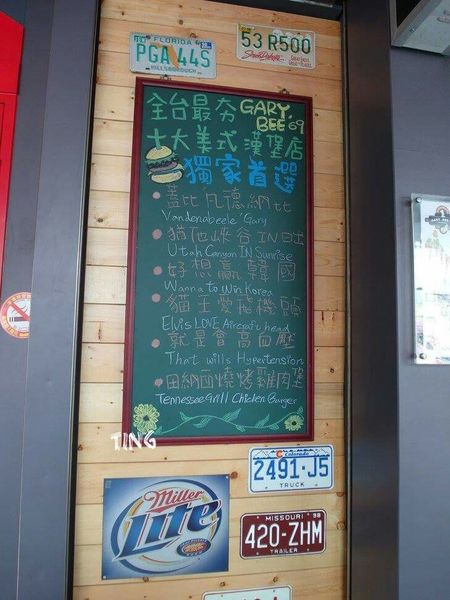 FLORIDA
PGA 44S
HILLSBOROUGH
53 R500
South Dakota
GREAT FACES. GREAT PLACES.
全台最夯 GARY BEE 69
十大美式漢堡店
獨家首選
蓋比 凡德納比
Vandenabeele Gary
猶他峽谷IN日出
Utah Canyon IN Sunrise
好想贏韓國
Wanna to Win Korea
貓王愛飛機頭
Elvis LOVE Aircraft head
就是會高血壓
That wills Hypertension
田納西燒烤雞肉堡
Tennessee Grill Chicken Burger
TING
Colorado
2491-J5
TRUCK
Miller
Lite
MISSOURI 98
420-ZHM
TRAILER